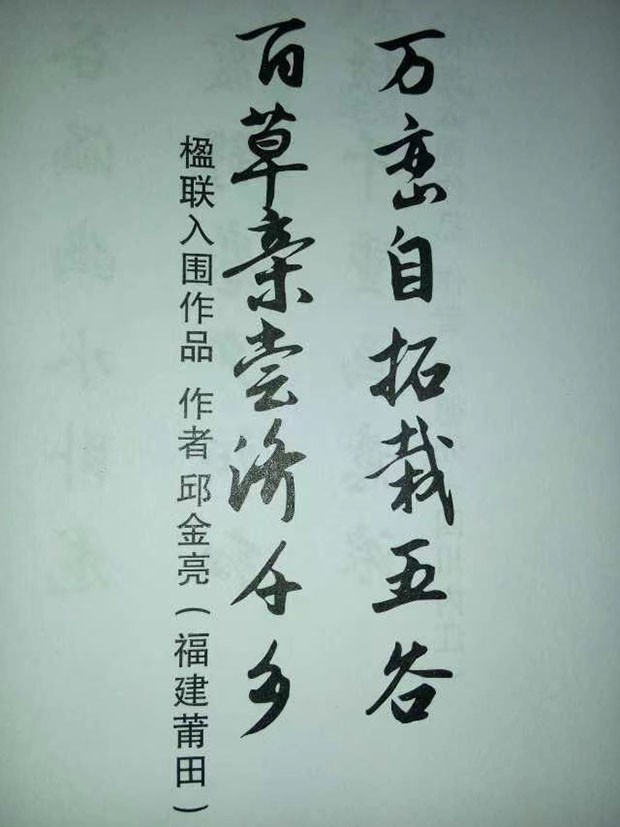 万峦自拓栽五谷
百草亲尝济千乡
楹联入围作品 作者 邱金亮（福建莆田）